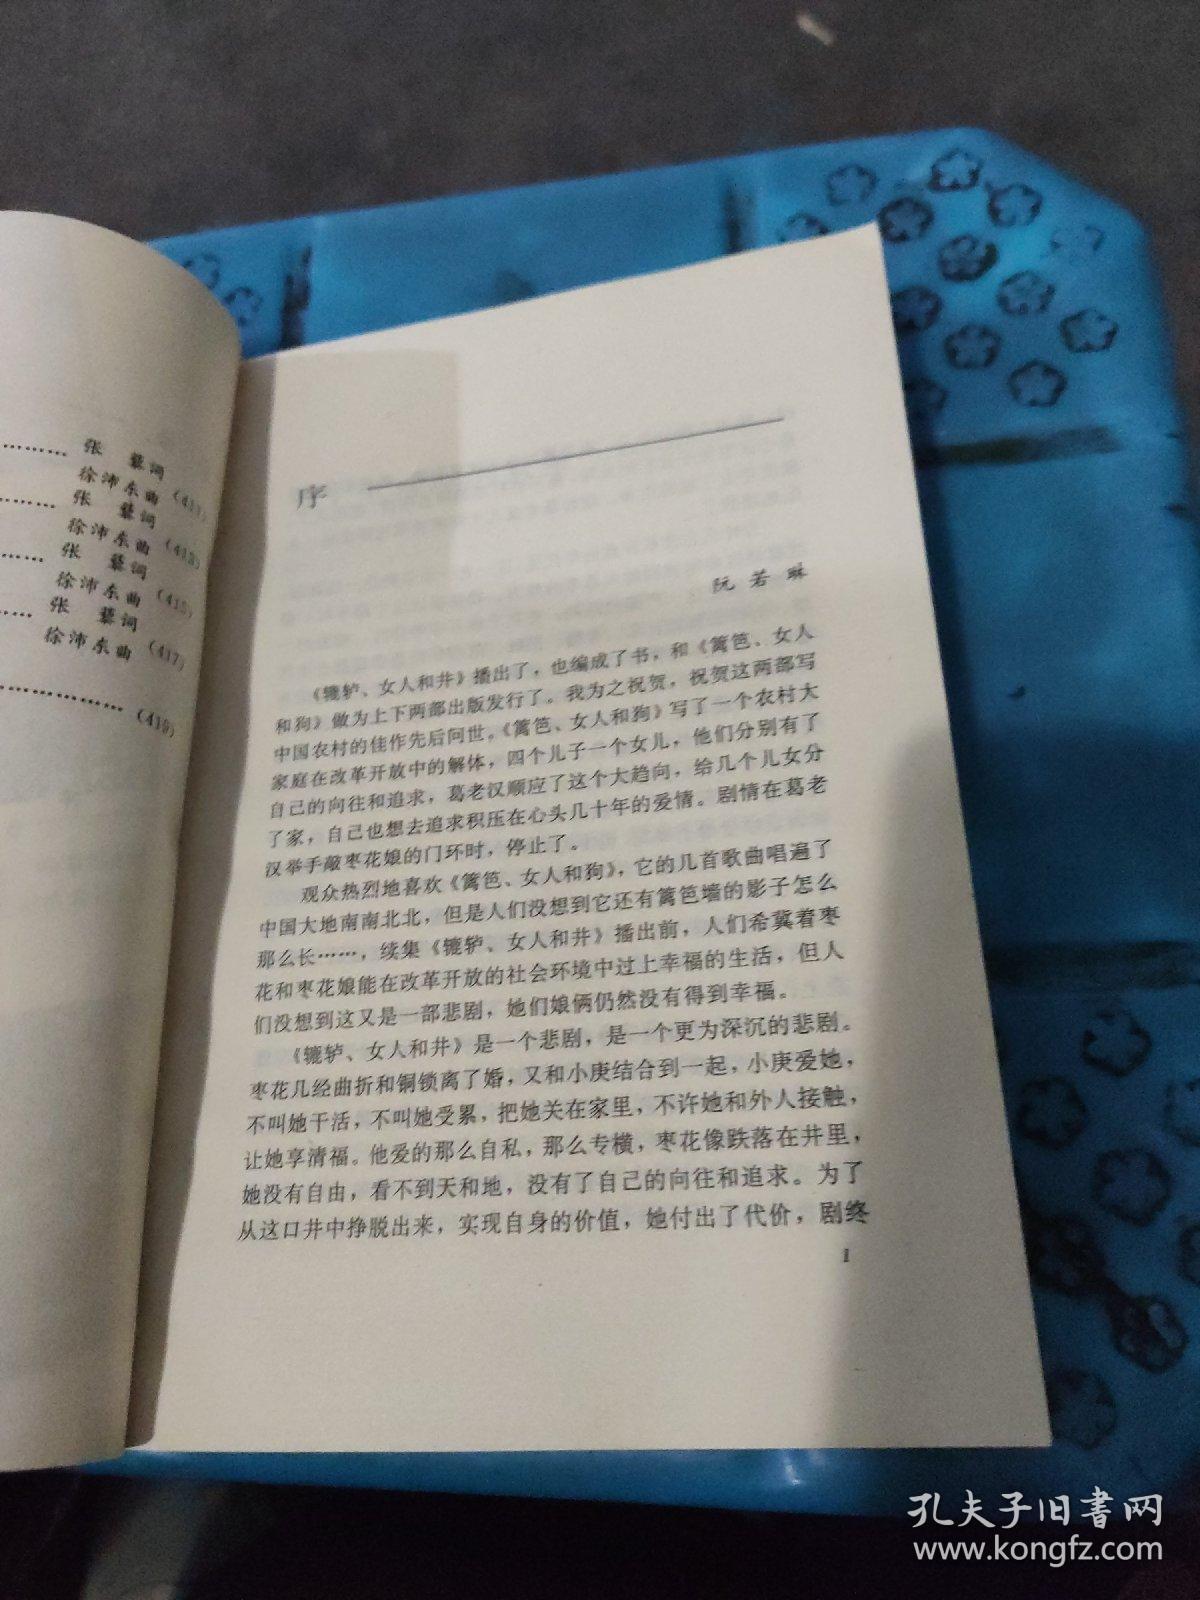 ………… 张 藜词
徐沛东曲 (411)
…… 张 藜词
徐沛东曲 (413)
…… 张 藜词
徐沛东曲 (415)
…… 张 藜词
徐沛东曲 (417)
………… (419)
序
阮若琳
《辘轳、女人和井》播出了，也编成了书，和《篱笆、女人
和狗》做为上下两部出版发行了。我为之祝贺，祝贺这两部写
中国农村的佳作先后问世。《篱笆、女人和狗》写了一个农村大
家庭在改革开放中的解体，四个儿子一个女儿，他们分别有了
自己的向往和追求，葛老汉顺应了这个大趋向，给几个儿女分
了家，自己也想去追求积压在心头几十年的爱情。剧情在葛老
汉举手敲枣花娘的门环时，停止了。
观众热烈地喜欢《篱笆、女人和狗》，它的几首歌曲唱遍了
中国大地南南北北，但是人们没想到它还有篱笆墙的影子怎么
那么长……，续集《辘轳、女人和井》播出前，人们希冀着枣
花和枣花娘能在改革开放的社会环境中过上幸福的生活，但人
们没想到这又是一部悲剧，她们娘俩仍然没有得到幸福。
《辘轳、女人和井》是一个悲剧，是一个更为深沉的悲剧。
枣花几经曲折和铜锁离了婚，又和小庚结合到一起，小庚爱她，
不叫她干活，不叫她受累，把她关在家里，不许她和外人接触，
让她享清福。他爱的那么自私，那么专横，枣花像跌落在井里，
她没有自由，看不到天和地，没有了自己的向往和追求。为了
从这口井中挣脱出来，实现自身的价值，她付出了代价，剧终
1
孔夫子旧书网
www.kongfz.com